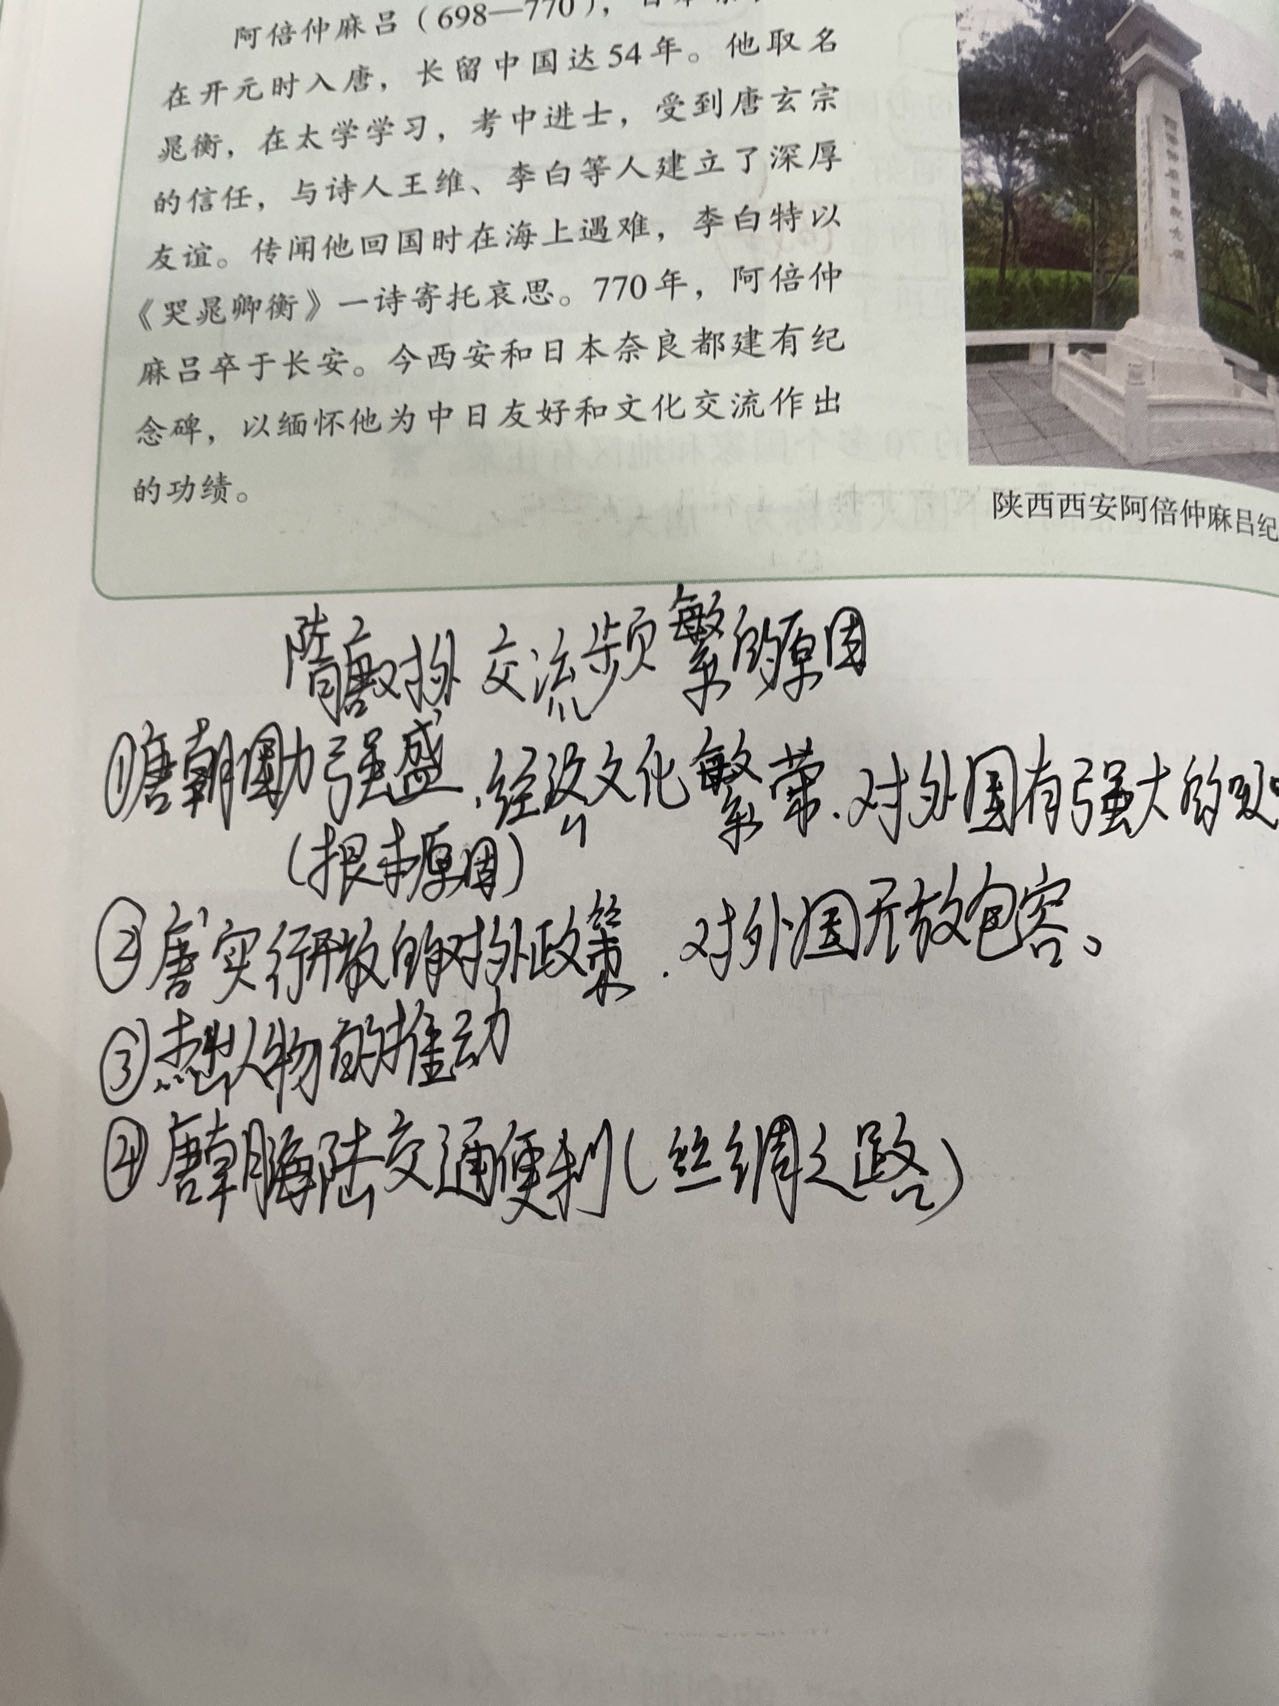 阿倍仲麻吕（698—770），日本
在开元时入唐，长留中国达54年。他取名
晁衡，在太学学习，考中进士，受到唐玄宗
的信任，与诗人王维、李白等人建立了深厚
友谊。传闻他回国时在海上遇难，李白特以
《哭晁卿衡》一诗寄托哀思。770年，阿倍仲
麻吕卒于长安。今西安和日本奈良都建有纪
念碑，以缅怀他为中日友好和文化交流作出
的功绩。
陕西西安阿倍仲麻吕纪
隋唐对外交流频繁的原因
①唐朝国力强盛、经济文化繁荣、对外国有强大的吸
（根本原因）
②唐实行开放的对外政策、对外国开放包容。
③杰出人物的推动
④唐朝海陆交通便利（丝绸之路）